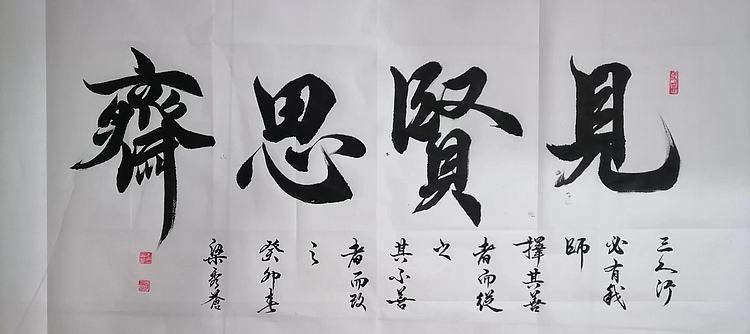 見賢思齊
三人行
必有我
師
擇其善
者而從
之
其不善
者而改
之
癸卯春